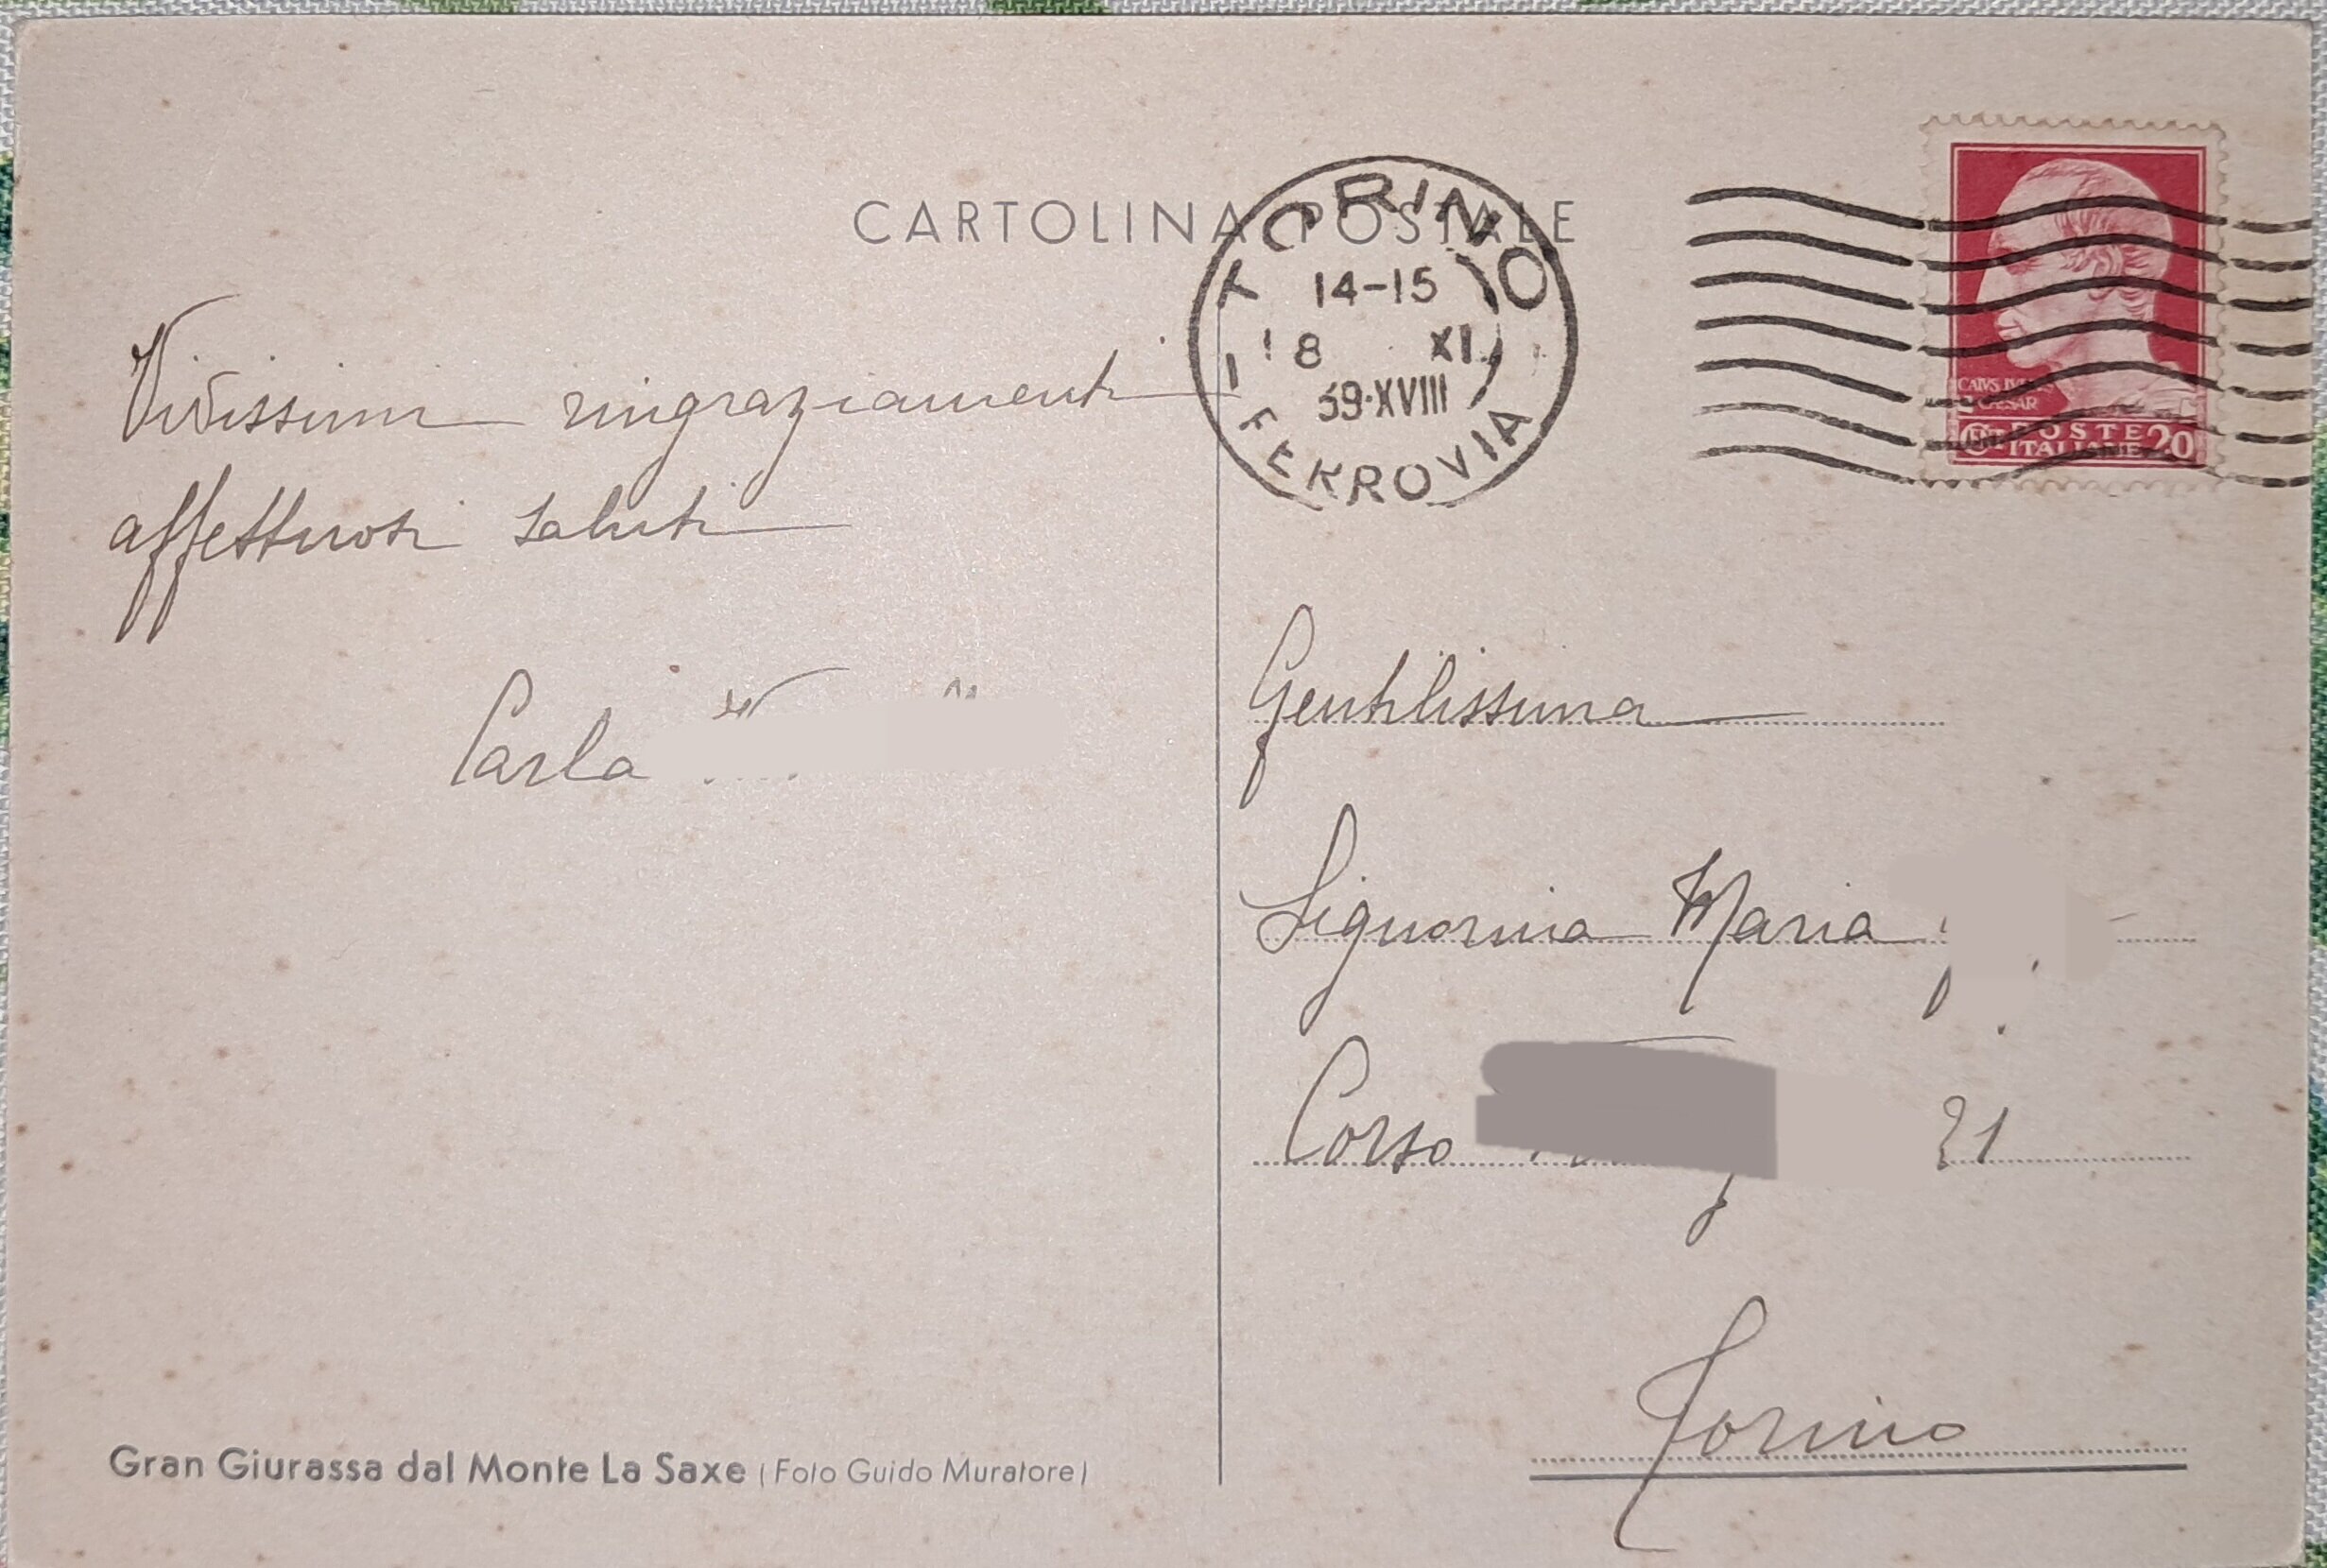 CARTOLINA POSTALE
TORINO
14-15
8 XI
39·XVIII
FERROVIA
CAIVS IVLIVS
CAESAR
CENT. POSTE
ITALIANE 20
Vivissimi ringraziamenti
affettuosi saluti
Carla
Gentilissima
Signorina Maria
Corso 21
Torino
Gran Giurassa dal Monte La Saxe (Foto Guido Muratore)